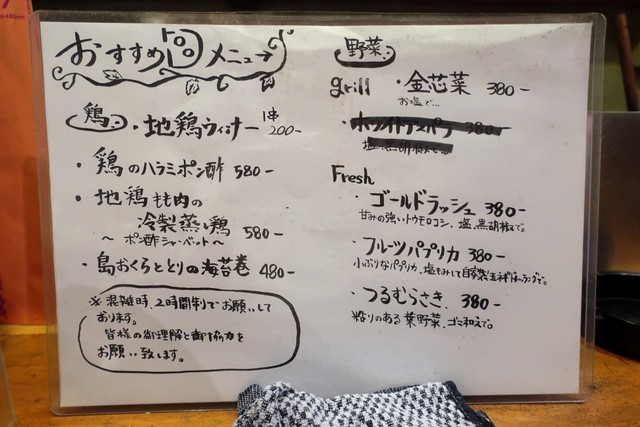 おすすめ メニュー
鶏
・地鶏ウィンナー 1串 200-
・鶏のハラミポン酢 580-
・地鶏もも肉の
冷製蒸し鶏 580-
〜ポン酢シャーベット〜
・島おくらととりの海苔巻 480-
※混雑時、2時間制でお願いして
おります。
皆様の御理解と御協力を
お願い致します。
野菜
grill ・金芯菜 380-
お塩で…
・ホワイトアスパラ 380-
塩、黒胡椒で…
Fresh
・ゴールドラッシュ 380-
甘みの強いトウモロコシ、塩、黒胡椒で。
・フルーツパプリカ 380-
小ぶりなパプリカ、塩もみして自家製玉ネギドレッシングで。
・つるむらさき、380-
粘りのある葉野菜、ゴミ和えで。